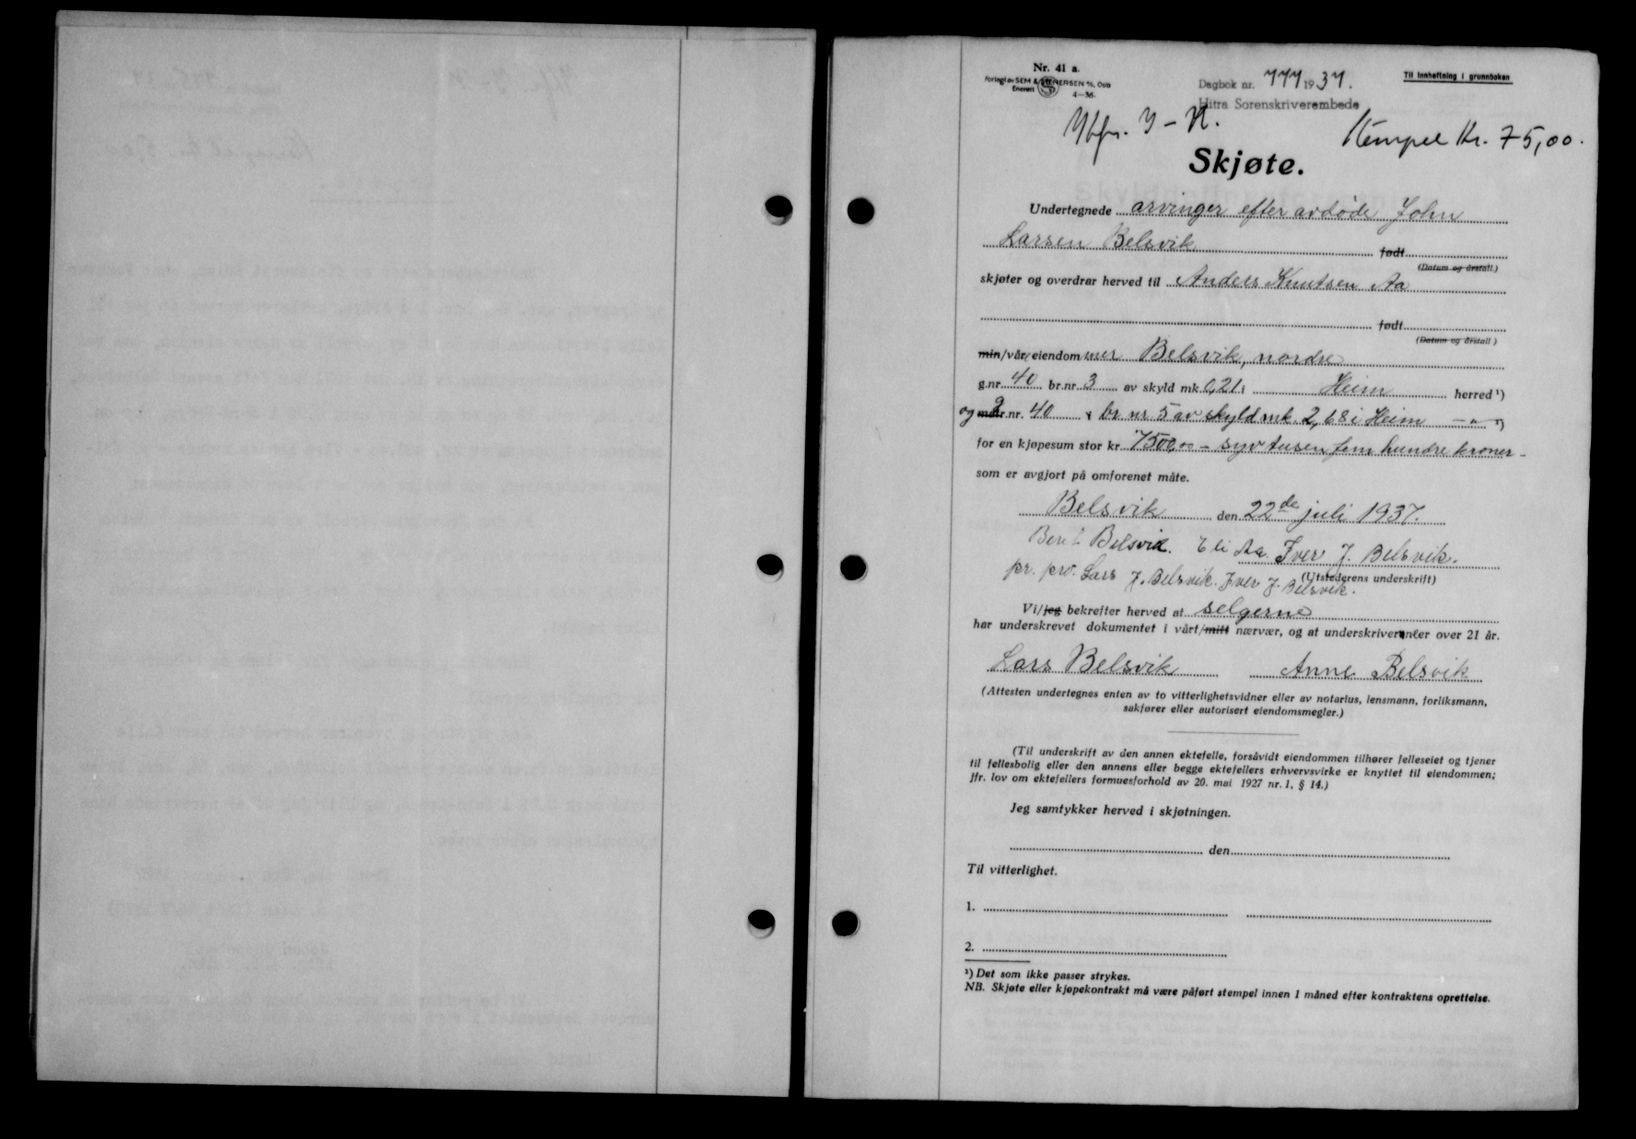 Nr. 41 a.
Forlagt av SEM & STENERSEN A/S, Oslo
Enerett
4—36.
Dagbok nr. 777 1937.
Hitra Sorenskriverembede
Til innheftning i grunnboken
Stempel Kr. 75,00.
Skjøte.
Undertegnede arvinger efter avdøde John
Larsen Belsvik født
(Datum og årstall)
skjøter og overdrar herved til Anders Knutsen Aa
født
(Datum og årstall)
min/vår eiendom Belsvik, nordre
g.nr. 40 br.nr. 3 av skyld mk. 0,21 i Heim herred ¹)
og g.nr. 40 br nr 5 av skyld mk 2,68 i Heim —"— ¹)
for en kjøpesum stor kr. 7500,00 – syv tusen fem hundre kroner –
som er avgjort på omforenet måte.
Belsvik den 22de juli 1937.
Berit Belsvik. Eli Aa. Iver J. Belsvik.
(Utstederens underskrift)
pr. pro. Lars J. Belsvik. Iver J. Belsvik.
Vi/jeg bekrefter herved at selgerne
har underskrevet dokumentet i vårt/mitt nærvær, og at underskriverne er over 21 år.
Lars Belsvik Anne Belsvik
(Attesten undertegnes enten av to vitterlighetsvidner eller av notarius, lensmann, forliksmann,
sakfører eller autorisert eiendomsmegler.)
(Til underskrift av den annen ektefelle, forsåvidt eiendommen tilhører felleseiet og tjener
til fellesbolig eller den annens eller begge ektefellers erhvervsvirke er knyttet til eiendommen;
jfr. lov om ektefellers formuesforhold av 20. mai 1927 nr. 1, § 14.)
Jeg samtykker herved i skjøtningen.
den
Til vitterlighet.
1.
2.
¹) Det som ikke passer strykes.
NB. Skjøte eller kjøpekontrakt må være påført stempel innen 1 måned efter kontraktens oprettelse.